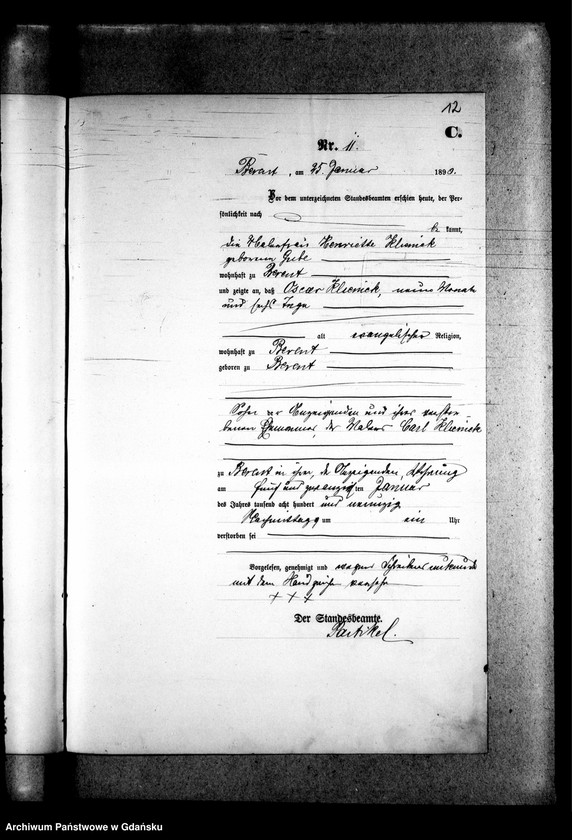 12
C.
Nr. 11.
Berent, am 25. Januar 1890.
Vor dem unterzeichneten Standesbeamten erschien heute, der Per-
sönlichkeit nach
be kannt,
die Malerfrau Henriette Klienick
geborene
wohnhaft zu Berent
und zeigte an, daß Oscar Klienick, neun Monate
und sechs Tage
alt evangelischer Religion,
wohnhaft zu Berent
geboren zu Berent
Sohn der Anzeigenden und ihres verstor-
benen Ehemannes, des Malers Carl Klienick
zu Berent in ihrer, der Anzeigenden, Wohnung
am fünf und zwanzig ten Januar
des Jahres tausend acht hundert und neunzig
Nachmittags um ein Uhr
verstorben sei
Vorgelesen, genehmigt und wegen Schreibensunkunde
mit dem Handzeichen versehen
+++
Der Standesbeamte.
Partikel.
Archiwum Państwowe w Gdańsku